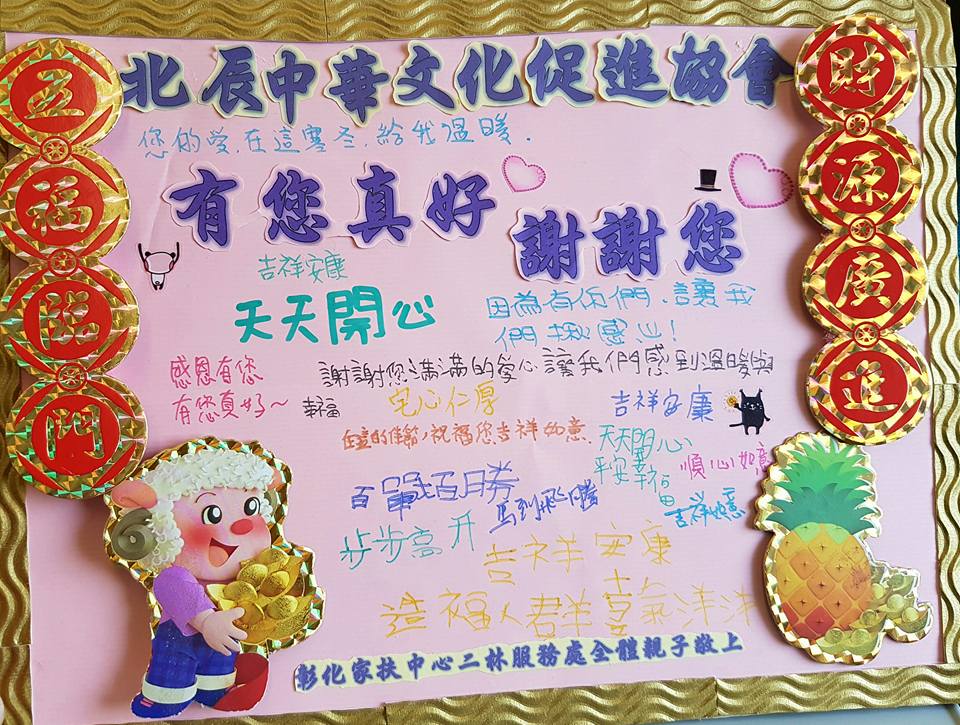 北辰中華文化促進協會
五福臨門
財源廣進
您的愛.在這寒冬.給我溫暖.
有您真好
謝謝您
吉祥安康
天天開心
因為有你們.讓我
們揪感心!
感恩有您
有您真好~
謝謝您滿滿的愛心讓我們感到溫暖與
幸福
宅心仁厚
吉祥安康
祝福您吉祥如意
天天開心
平安幸福
順心如意
百戰百勝
馬到飛騰
吉祥如意
步步高升
吉祥安康
造福人群喜氣洋洋
彰化家扶中心二林服務處全體親子敬上